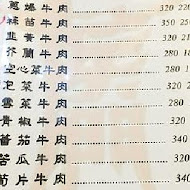 牛肉 320
蒜苗牛肉 320
韭黃牛肉 320
芥蘭牛肉 280
空心菜牛肉 280
泡菜牛肉 320
雪菜牛肉 280
青椒牛肉 320
蕃茄牛肉 340
苦瓜牛肉 320
筍片牛肉 340